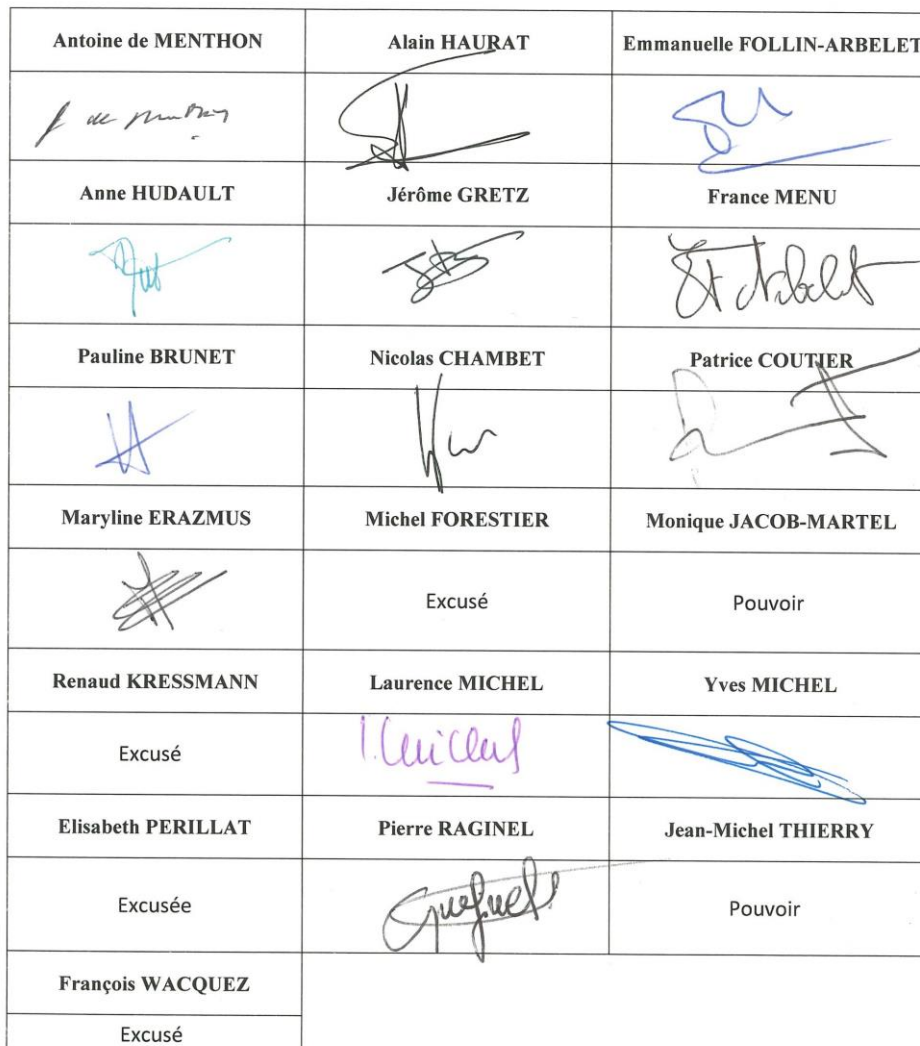 Antoine de MENTHON
Alain HAURAT
Emmanuelle FOLLIN-ARBELET
de Menthon
Anne HUDAULT
Jérôme GRETZ
France MENU
Pauline BRUNET
Nicolas CHAMBET
Patrice COUTIER
Maryline ERAZMUS
Michel FORESTIER
Monique JACOB-MARTEL
Excusé
Pouvoir
Renaud KRESSMANN
Laurence MICHEL
Yves MICHEL
Excusé
Elisabeth PERILLAT
Pierre RAGINEL
Jean-Michel THIERRY
Excusée
Pouvoir
François WACQUEZ
Excusé